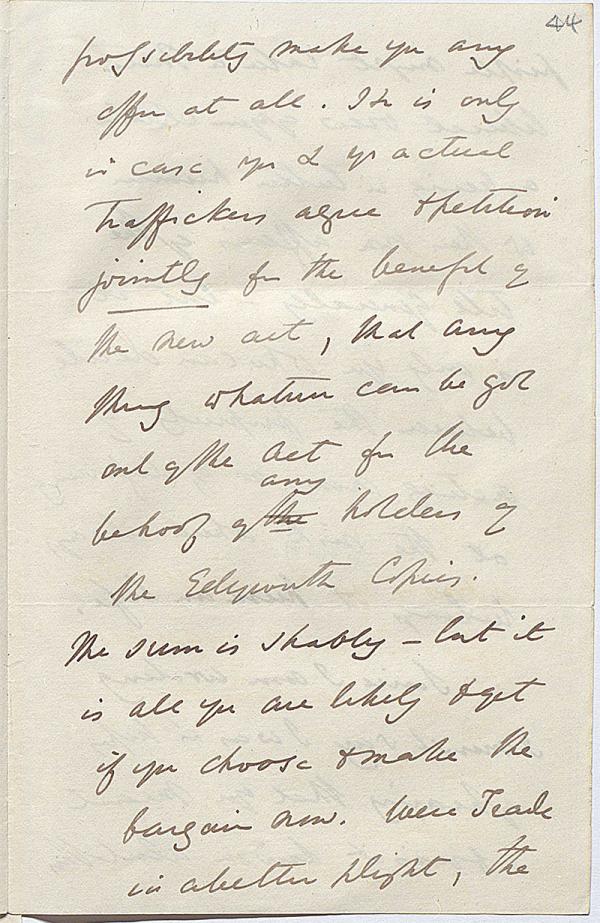 44
possibility make yr any
offer at all. It is only
in case yr & yr actual
Traffickers agree to petition
jointly for the benefit of
the new act, that any
thing whatever can be got
out of the Act for the
behoof of the any holders of
the Edgeworth Copies.
The sum is shabby – but it
is all yr are likely to get
if yr choose to make the
bargain now. Were Trade
in a better plight, the